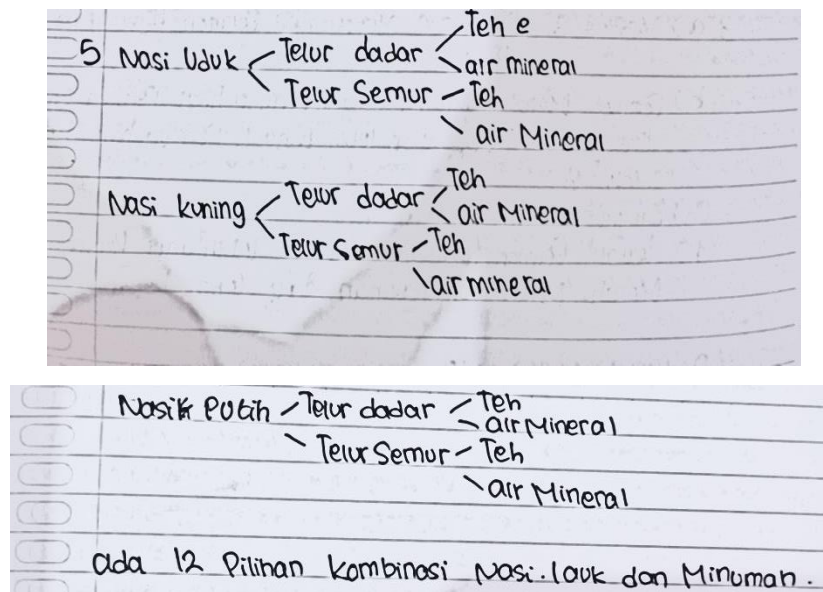 Teh e
5 Nasi Uduk Telur dadar
air mineral
Telur Semur Teh
air Mineral
Teh
Nasi kuning Telur dadar
air Mineral
Telur Semur Teh
air mineral
Nasik Putih Telur dadar Teh
air Mineral
Telur Semur Teh
air Mineral
ada 12 Pilihan kombinasi Nasi. lauk dan Minuman.